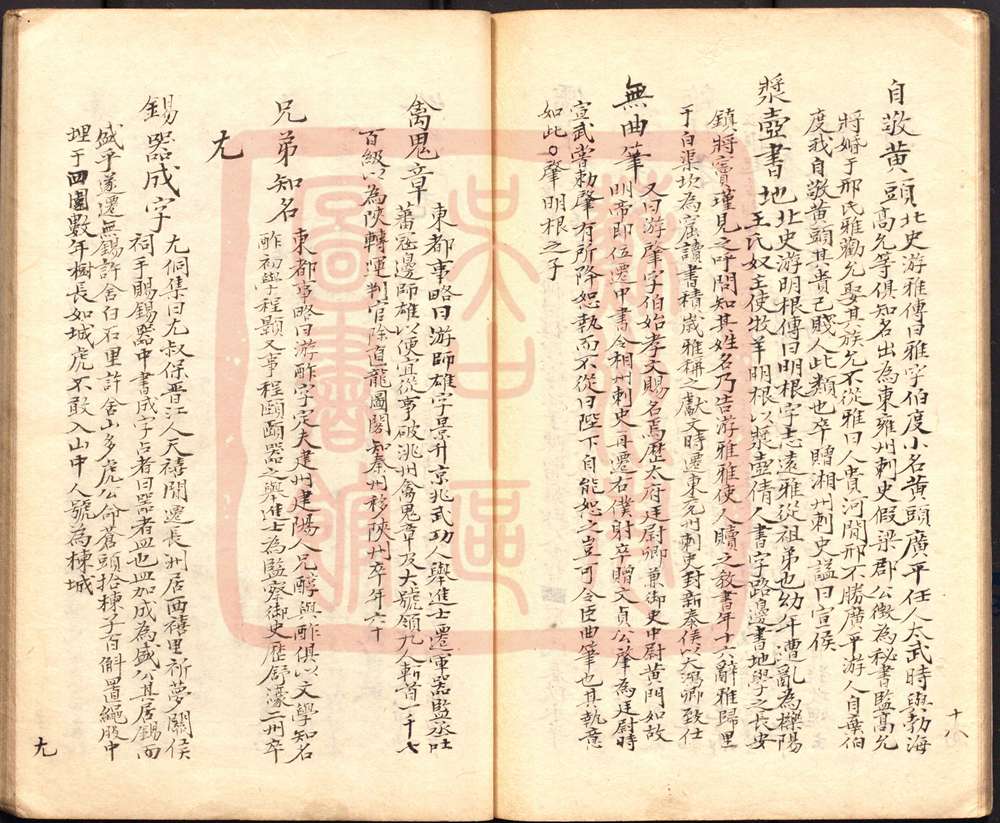 自敬黃頭 北史游雅傳曰雅字伯度小名黃頭廣平任人太武時與勃海
高允等俱知名出為東雍州刺史假梁郡公徵為秘書監高允
將婚于邢氏雅勸允娶其族允不從雅曰人貴河間邢不勝廣平游人自棄伯
度我自敬黃頭其貴己賤人此類也卒贈湘州刺史謚曰宣侯
漿壺書地 北史游明根傳曰明根字志遠雅從祖弟也幼年遭亂為櫟陽
王氏奴主使牧羊明根以漿壺倩人書字路邊書地學之長安
鎮將竇瑾見之呼問知其姓名乃告游雅雅使人贖之教書年十六辭雅歸里
于白渠坎為窟讀書積歲雅稱之獻文時遷東兗州刺史封新泰侯以大鴻卿致仕
無曲筆 又曰游肇字伯始孝文賜名焉歷太府廷尉卿兼御史中尉黃門如故
明帝即位遷中書令相州刺史再遷右僕射卒贈文貞公肇為廷尉時
宣武嘗勅肇有所降恕執而不從曰陛下自能恕之豈可令臣曲筆也其執意
如此○肇明根之子
十八
禽鬼章 東都事略曰游師雄字景升京兆武功人舉進士遷軍器監丞吐
蕃寇邊師雄以便宜從事破洮州禽鬼章及大號領九人斬首一千七
百級以為陝轉運判官除直龍圖閣知秦州移陝州卒年六十
兄弟知名 東都事略曰游酢字定夫建州建陽人兄醇與酢俱以文學知名
酢初學程顥又事程頤頤器之舉進士為監察御史歷舒濠二州卒
尤
錫器成字 尤侗集曰尤叔保晉江人天禧間遷長洲居西禧里祈夢關侯
祠手賜錫器中書成字占者曰器者皿也皿加成為盛公其居錫而
盛乎遂遷無錫許舍白石里許舍山多虎公命蒼頭拾楝子百斛置繩股中
埋于四圍數年樹長如城虎不敢入山中人號為楝城
尤